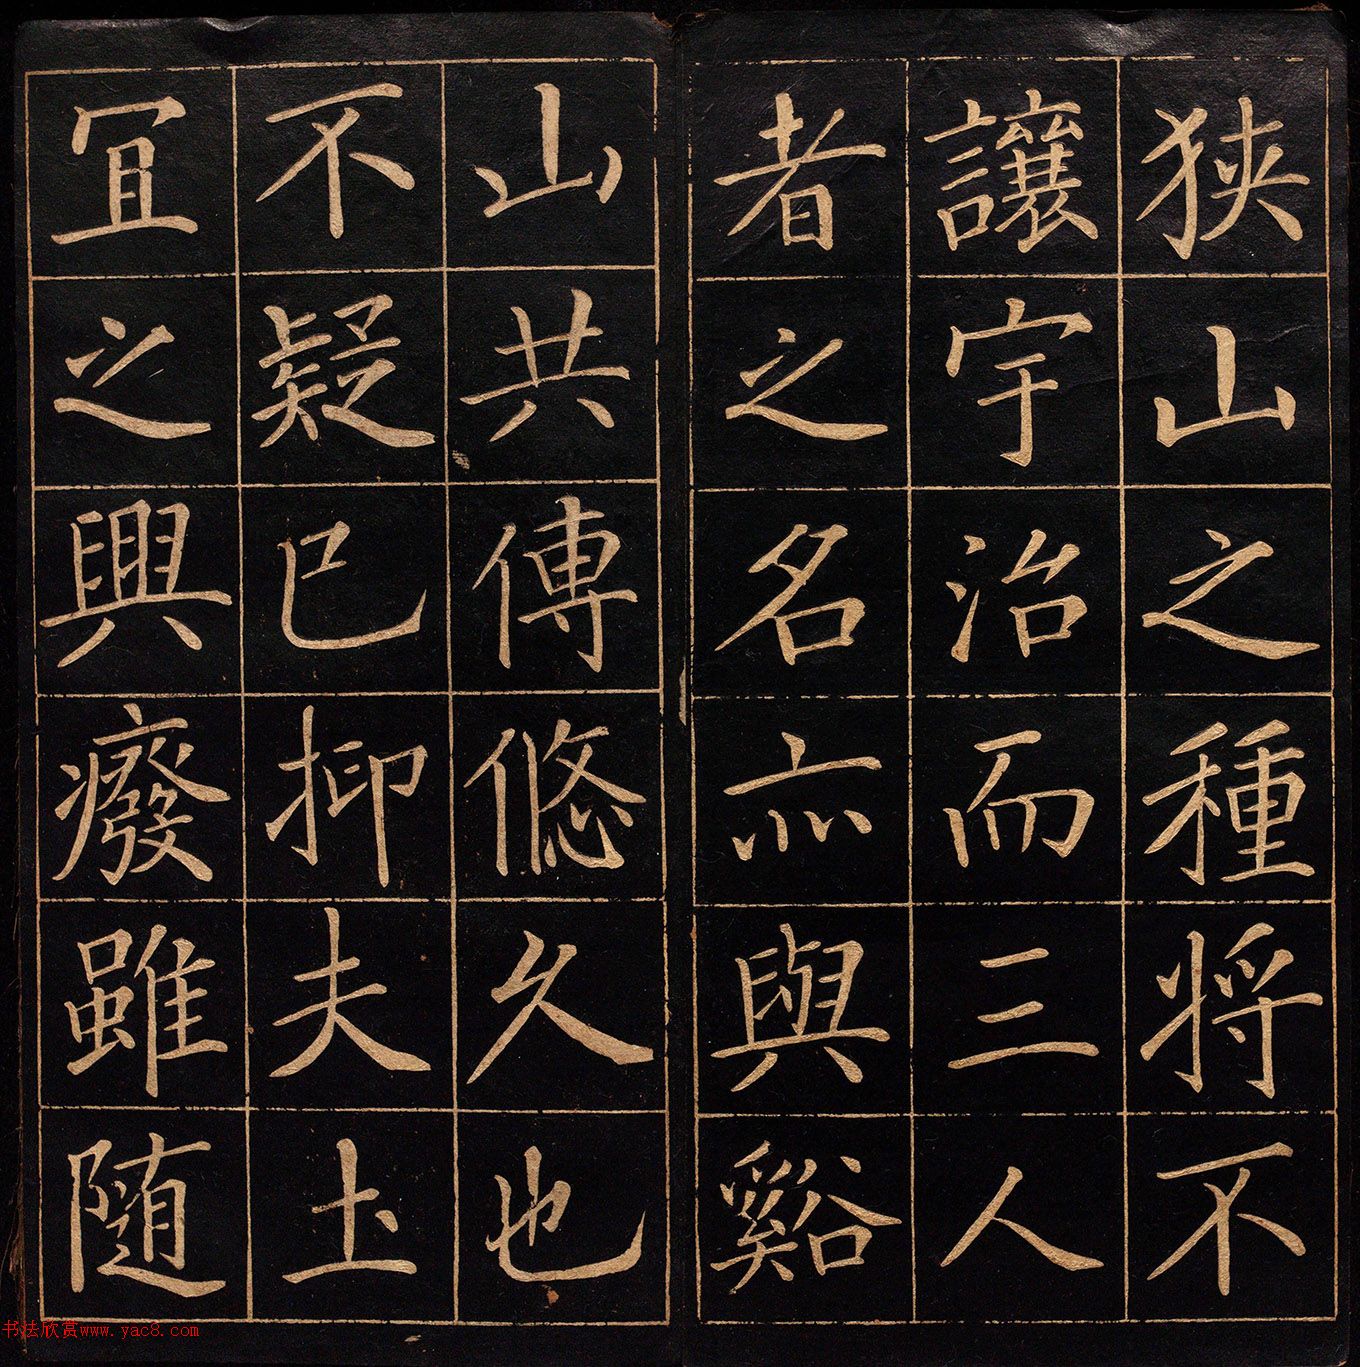 狹山之種將不
讓宇治而三人
者之名亦與谿
山共傳悠久也
不疑已抑夫土
宜之興癈雖随
书法欣赏www.yac8.com